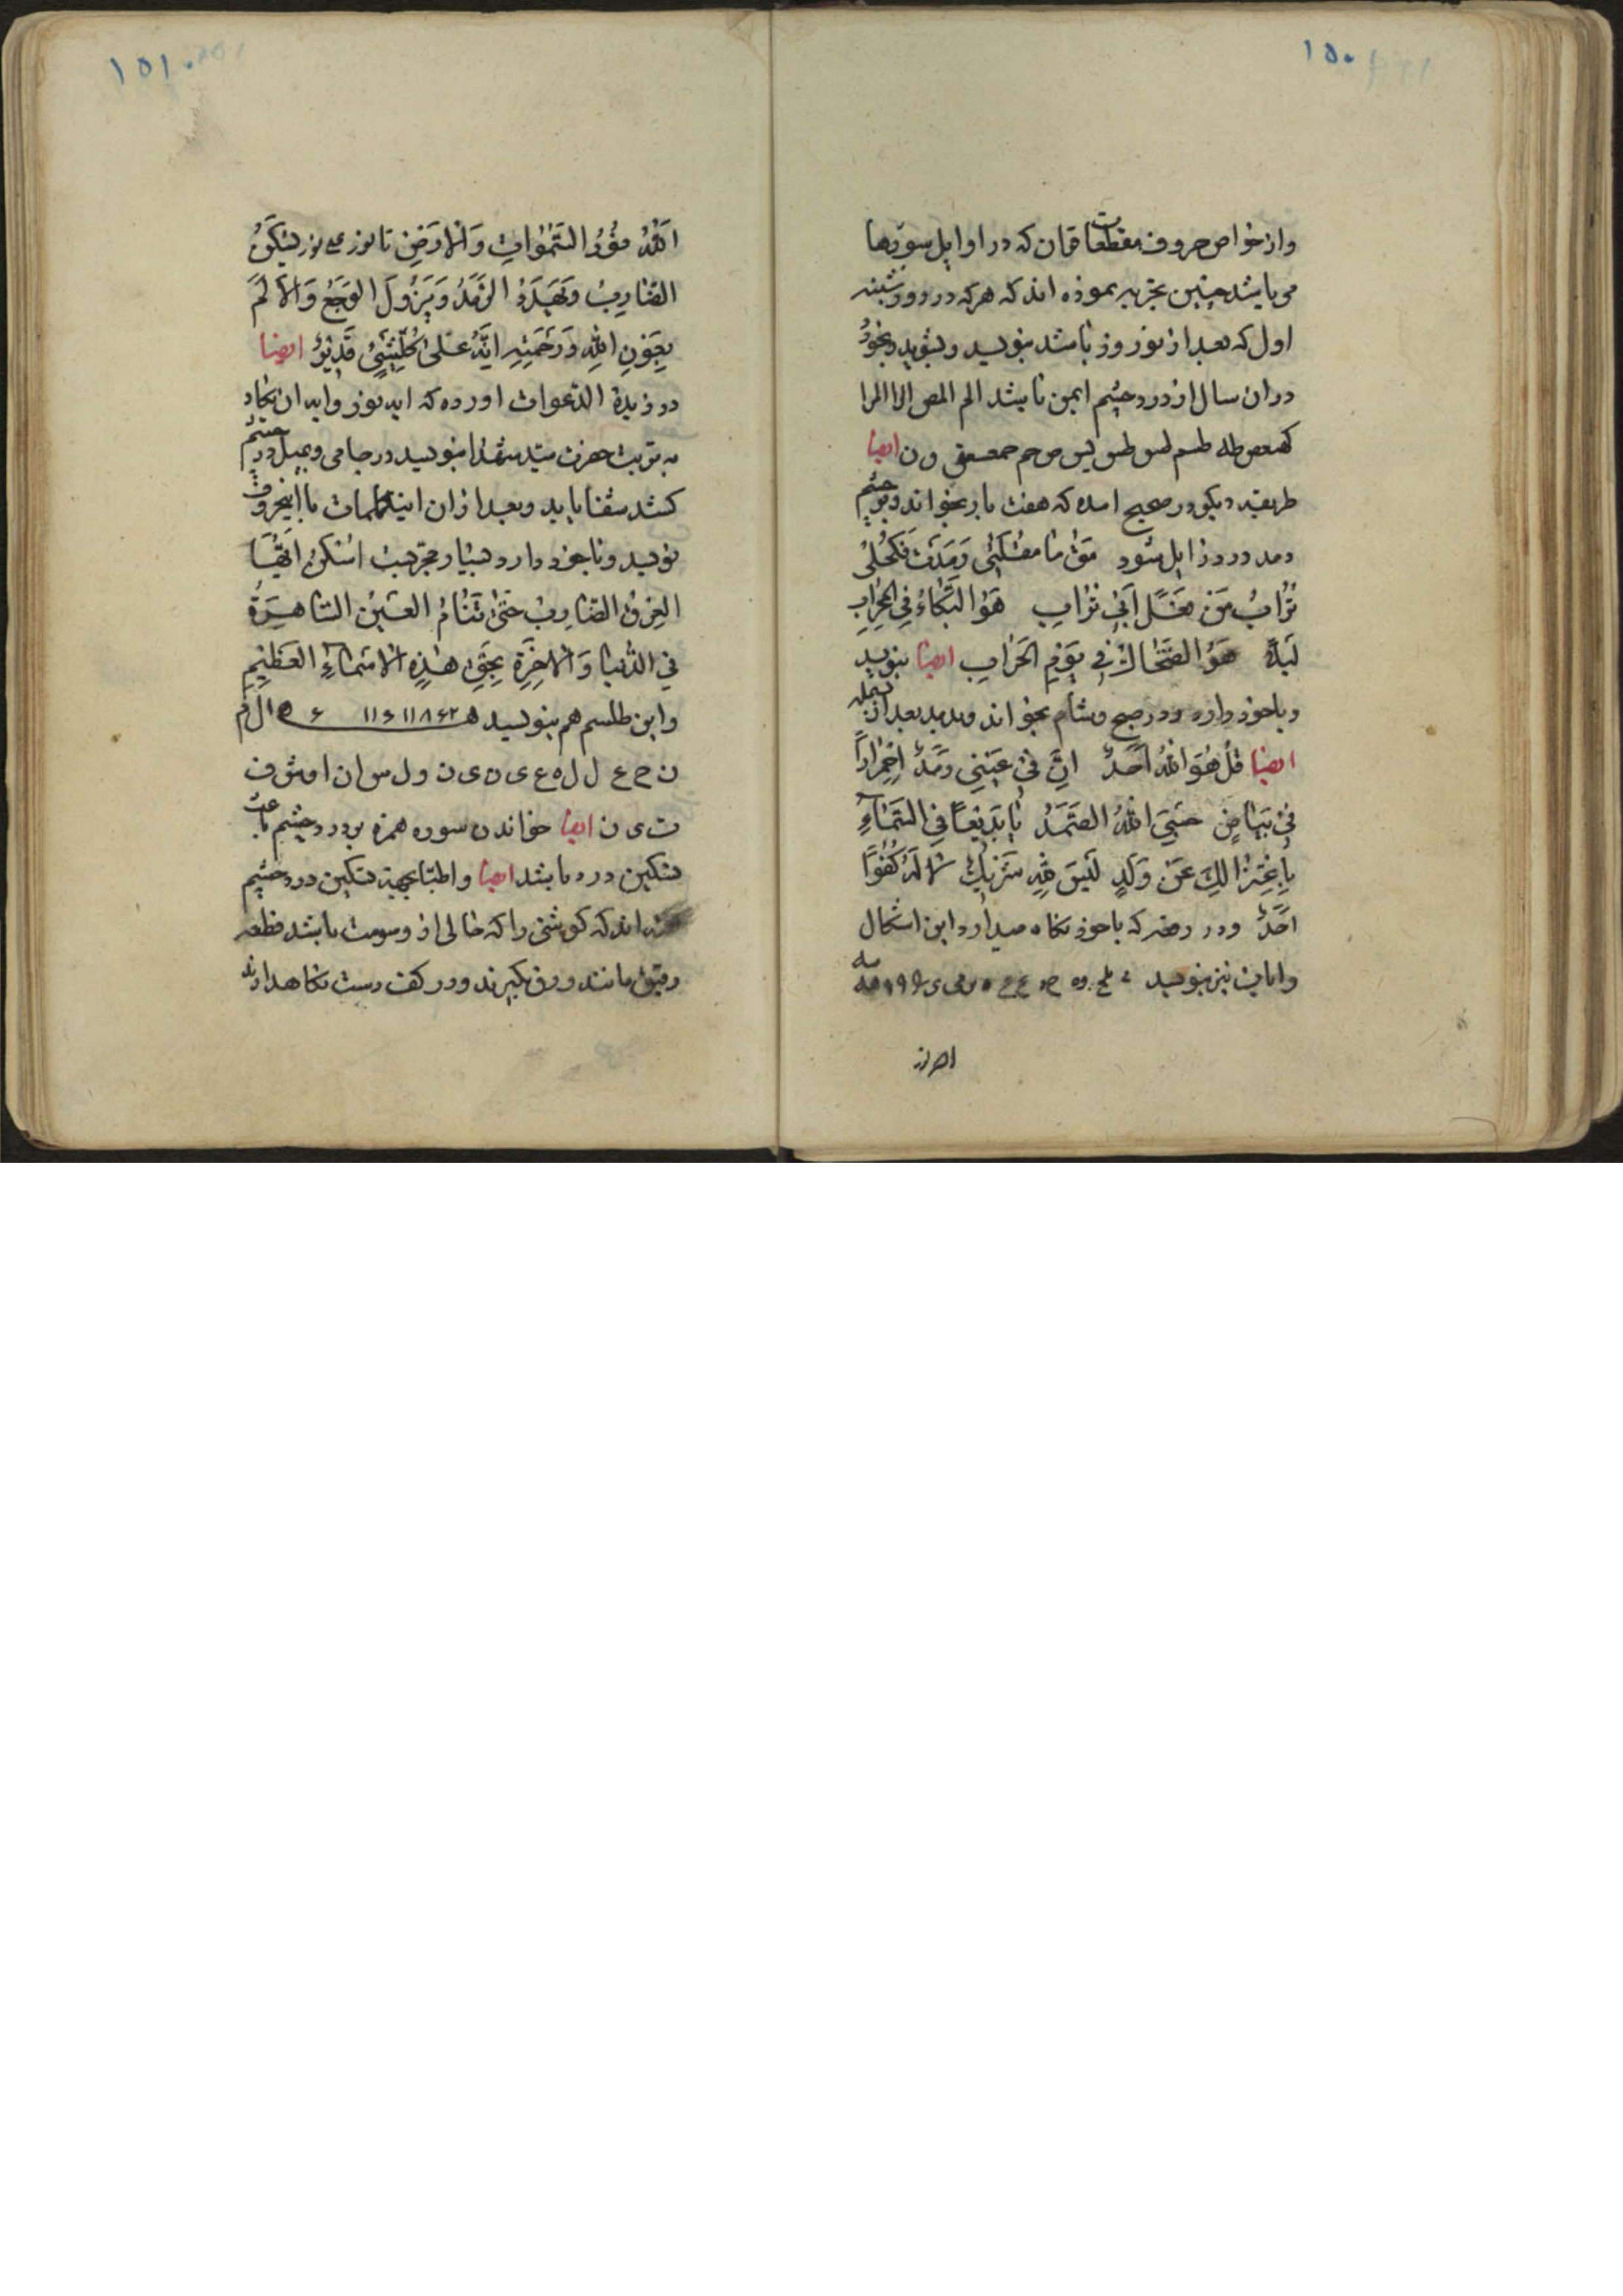 ۱۵۰
واز خواص حروف مقطعات قران که در اوایل سورها
می باشد چنین تجربه نموده اند که هر که در دوشنبه
اول که بعد از نوروز باشد بنویسد و بشوید و بخورد
در ان سال از درد چشم ایمن باشد الم المص الر المرا
کهیعص طه طسم طس یس ص حم حمعسق ق ن ایضا
طریقه دیکر در صحیح امده که هفت بار بخواند و بر چشم
دمد درد زایل شود
تُرابُ مَن اَبی تُرابِ هُوَ البَکّاءُ فِی المِحرابِ
لَیلاً هُوَ الضَّحّاکُ فی یَومِ الحَرابِ ایضا بنویسد
و باخود دارد و در صبح و شام بخواند و بدمد بعد از بسمله
ایضا قُل هُوَ اللهُ اَحَدٌ اِنَّ فی عَینی رَمَدٌ اِحمِراراً
فی بَیاضٍ حَسبِیَ اللهُ الصَّمَدُ یا بَدیعاً فِی السَّماءِ
عَن وَلَدٍ لَیسَ شَریکٌ لا لَهُ کُفُواً
اَحَدٌ و در رقعه که باخود نکاه میدارد این اشکال
وابیات نیز بنویسد
الله نور
۱۵۱
اَللهُ نُورُ السَّمٰواتِ وَالاَرضِ تا نور علی نور لیَسکُن
الضّارِبُ وَیَهدَءُ الرَّمَدُ وَیَزُولُ الوَجَعُ وَالاَلَمُ
بِعَونِ اللهِ وَرَحمَتِهِ اِنَّهُ عَلٰی کُلِّ شَیئٍ قَدیرٌ ایضا
در زبدة الدعوات اورده که ایه نور وایه ان یکاد
به تربت حضرت سید شهدا بنویسد در جامی و بمیل در چشم
کشد شفا یابد و بعد از ان این کلمات با این حروف
نویسد و با خود دارد بسیار مجربست اُسکُن اَیُّهَا
العِرقُ الضّارِبُ حَتّٰی تَنامَ العَینُ السّاهِرَةُ
فِی الدُّنیا وَالاخِرَةِ بِحَقِّ هٰذِهِ الاَسماءِ العَظیمِ
واین طلسم هم بنویسد
ن ح ع ل ل ه ع ی ن ی ن و ل س ا ن ا و ش ف
ت ی ن ایضا خواندن سوره همزه بر درد چشم باعث
تسکین درد باشد ایضا واطبا بجهة تسکین درد چشم
اند که کوشتی را که خالی از دسومت باشد قطعه
رقیق مانند ورق بکیرند و در کف دست نکاهدارند